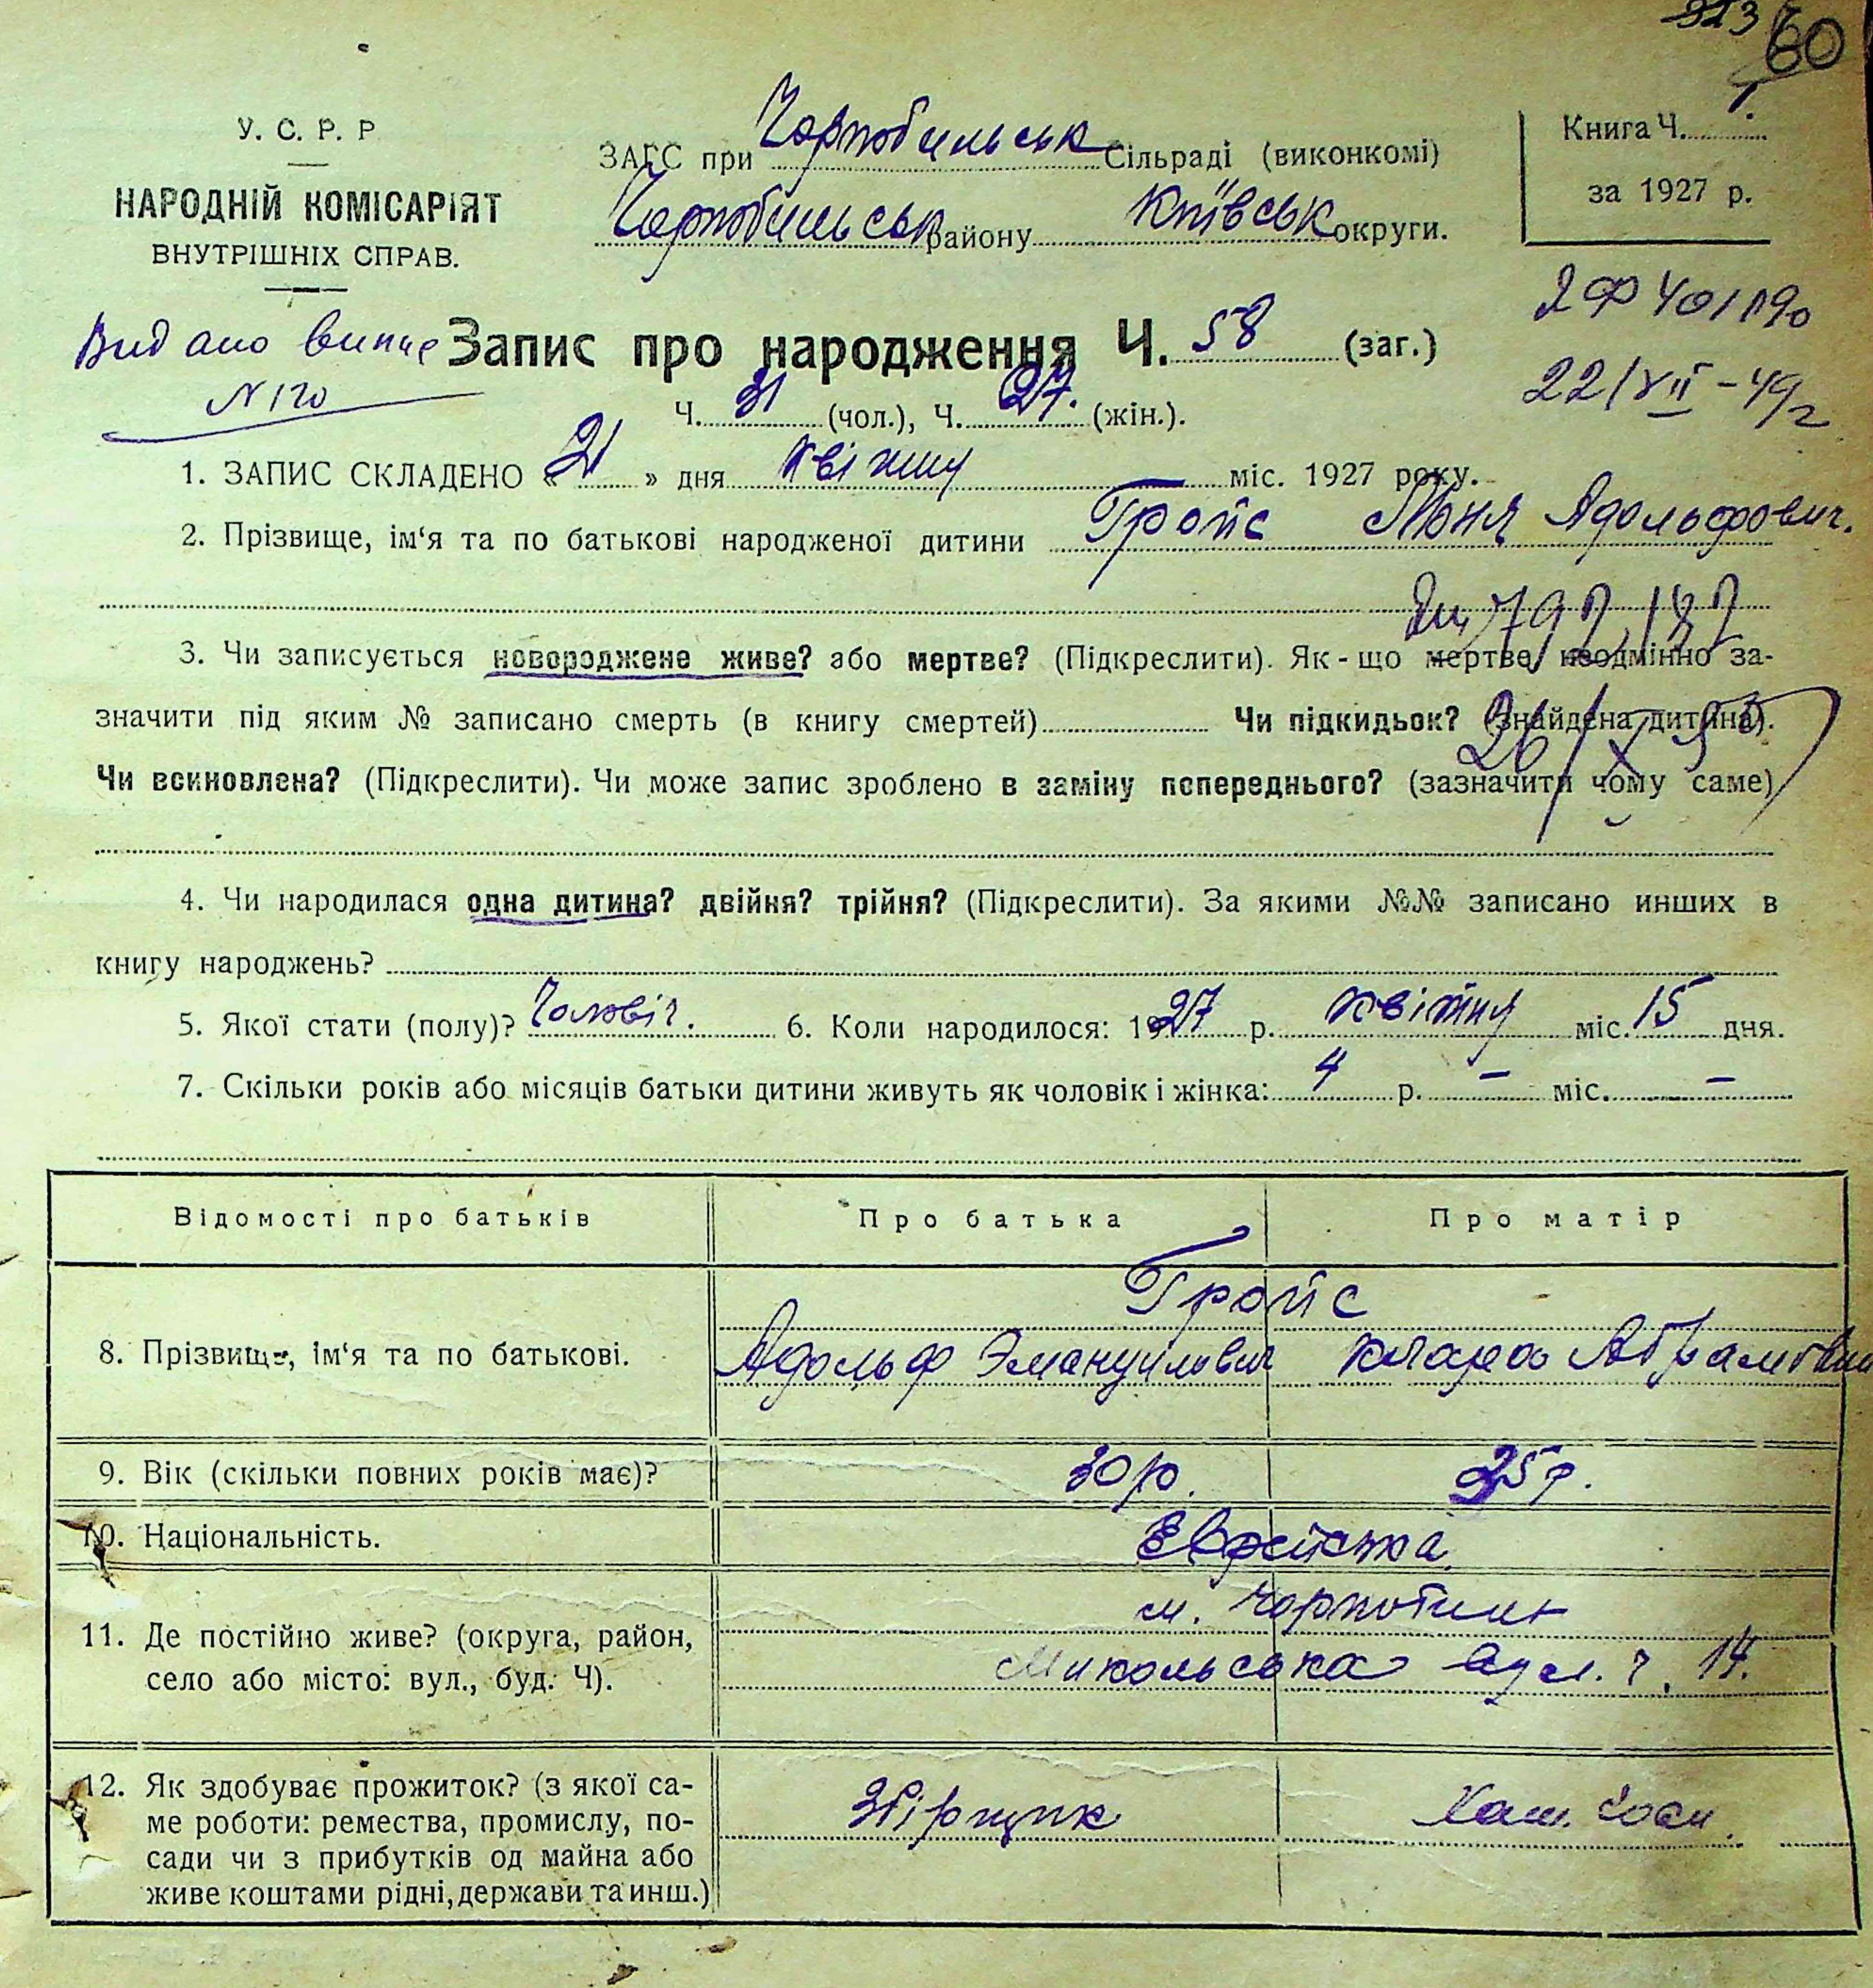 323 60
У. С. Р. Р
НАРОДНІЙ КОМІСАРІЯТ
ВНУТРІШНІХ СПРАВ.
ЗАГС при Чорнобильськ Сільраді (виконкомі)
Чорнобильськ району Київськ округи.
Книга Ч. 1.
за 1927 р.
Видано випис
N 120
Запис про народження Ч. 58 (заг.)
Ч. 31 (чол.), Ч. 27. (жін.).
22/VII-49г
1. ЗАПИС СКЛАДЕНО « 21 » дня квітня міс. 1927 року.
2. Прізвище, ім‘я та по батькові народженої дитини Гройс Мюня Адольфович.
3. Чи записується новороджене живе? або мертве? (Підкреслити). Як-що мертве, неодмінно за-
значити під яким № записано смерть (в книгу смертей) Чи підкидьок? (знайдена дитина).
Чи всиновлена? (Підкреслити). Чи може запис зроблено в заміну попереднього? (зазначити чому саме)
4. Чи народилася одна дитина? двійня? трійня? (Підкреслити). За якими №№ записано инших в
книгу народжень?
5. Якої стати (полу)? Чоловіч. 6. Коли народилося: 1927 р. квітня міс. 15 дня.
7. Скільки років або місяців батьки дитини живуть як чоловік і жінка: 4 р. – міс. –
Відомості про батьків Про батька Про матір
Гройс
8. Прізвище, ім‘я та по батькові. Адольф Эмануилович Клара Абрамовна
9. Вік (скільки повних років має)? 30 р. 25 р.
10. Національність. Еврейська
м. Чорнобиль
11. Де постійно живе? (округа, район,
село або місто: вул., буд. Ч). Микольська вул. ч. 14.
12. Як здобуває прожиток? (з якої са-
ме роботи: ремества, промислу, по-
сади чи з прибутків од майна або
живе коштами рідні, держави та инш.)
Збірщик Хат. Госп.